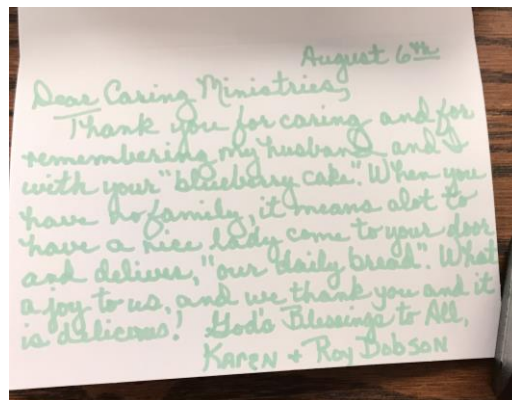 August 6th
Dear Caring Ministries,
Thank you for caring and for
remembering my husband and I
with your "blueberry cake". When you
have no family, it means alot to
have a nice lady come to your door
and deliver, "our daily bread". What
a joy to us, and we thank you and it
is delicious! God's Blessings to All,
Karen + Roy Dobson